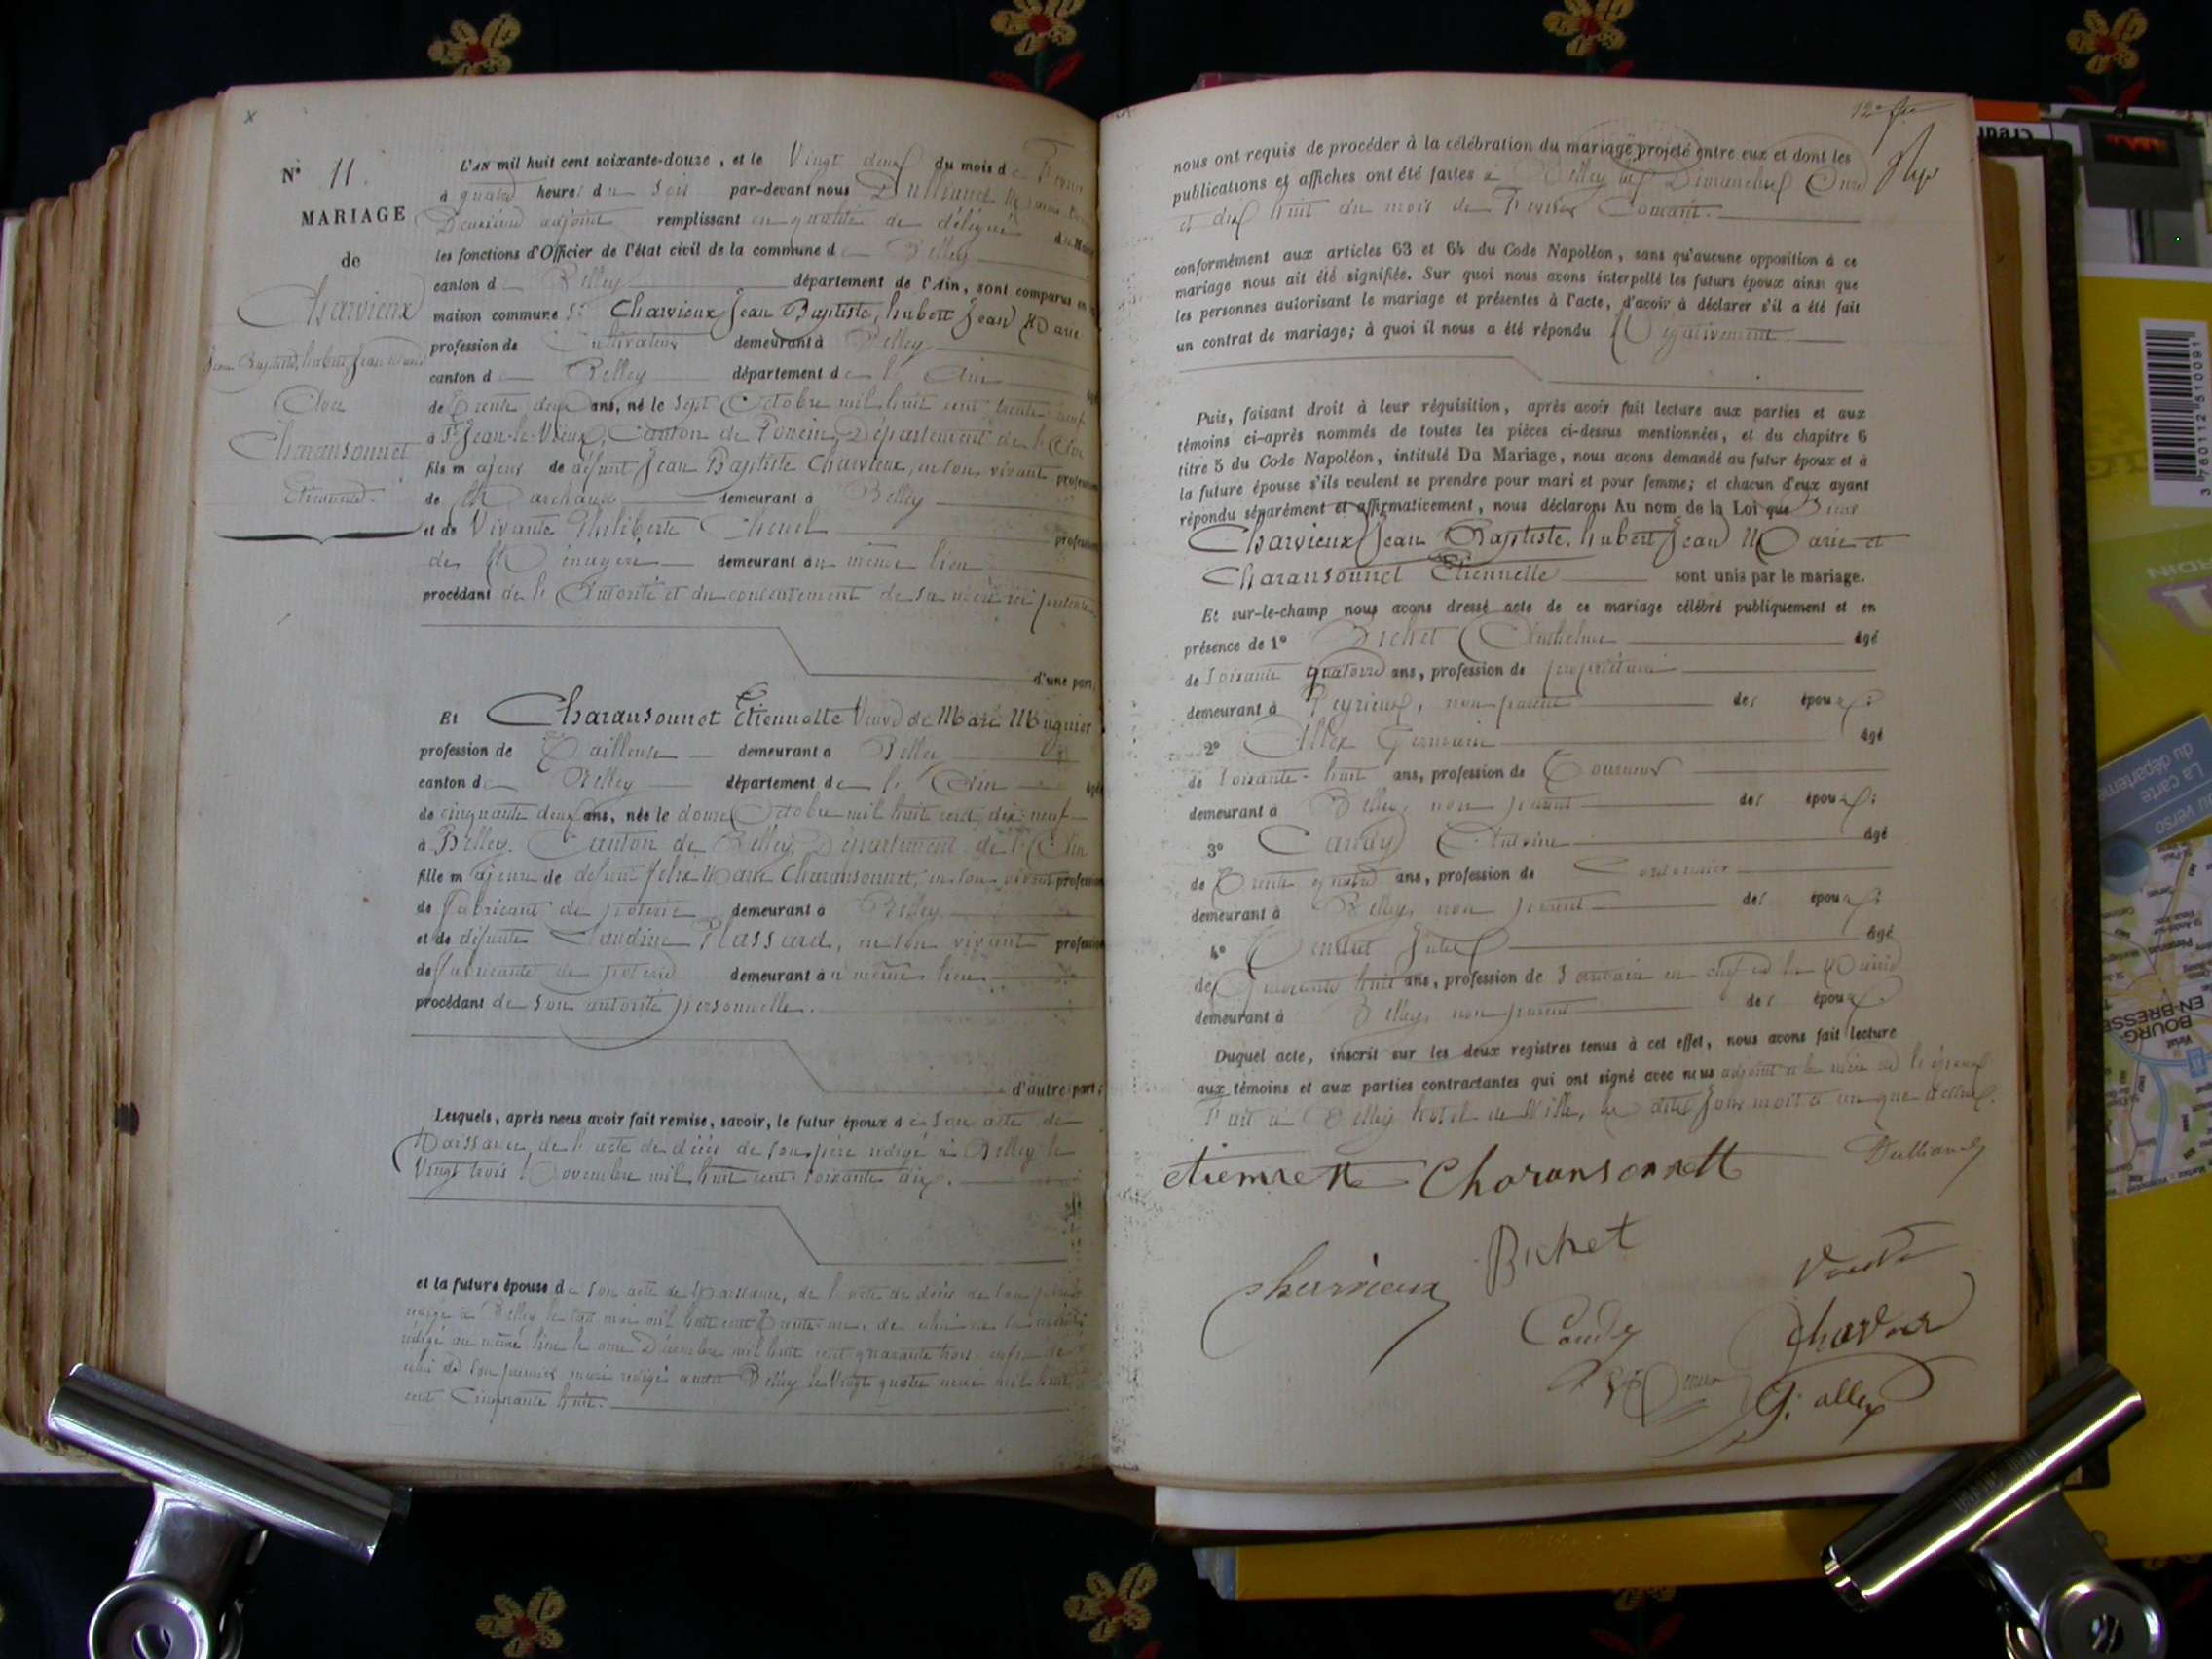 N° 11.
MARIAGE
de
Charvieux
Jean Baptiste, hubert Jean Marie
Avec
Charansonnet
Etiennette
L'AN mil huit cent soixante-douze, et le Vingt deux du mois de Février
à quatre heures du Soir par-devant nous
Deuxième adjoint remplissant en qualité de délégué du Maire
les fonctions d'Officier de l'état civil de la commune de Belley
canton de Belley département de l'Ain, sont comparus en la
maison commune Sr Charvieux Jean Baptiste, hubert Jean Marie
profession de Cultivateur demeurant à Belley
canton de Belley département de l'Ain âgé
de Trente deux ans, né le Sept Octobre mil huit cent trente neuf
à St Jean-le-Vieux, Canton de Poncin, Département de l'Ain
fils majeur de défunt Jean Baptiste Charvieux, en son vivant profession
de Marchand demeurant à Belley
et de Vivante Philiberte profession
de Ménagère demeurant au même lieu
procédant de l'Autorité et du consentement de sa mère ici présente
d'une part;
Et Charansonnet Etiennette Veuve de Marc Mugnier
profession de Tailleuse demeurant à Belley
canton de Belley département de l'Ain âgée
de cinquante deux ans, née le douze Octobre mil huit cent dix neuf
à Belley, Canton de Belley, Département de l'Ain
fille majeure de défunt felix Marie Charansonnet, en son vivant profession
de fabricant de poterie demeurant à Belley
et de défunte Claudine Plassard, en son vivant profession
de fabricante de poterie demeurant au même lieu
procédant de son autorité personnelle.
d'autre part;
Lesquels, après nous avoir fait remise, savoir, le futur époux de son acte de
Naissance, de l'acte de décès de son père rédigé à Belley le
Vingt trois Novembre mil huit cent soixante dix.
et la future épouse de son acte de Naissance, de l'acte de décès de son père
rédigé à Belley le mai mil huit cent Trente de celui de sa mère
rédigé au même lieu le onze Décembre mil huit cent quarante trois enfin de
celui de son premier mari rédigé audit Belley le Vingt quatre mai mil huit
cent Cinquante huit.
nous ont requis de procéder à la célébration du mariage projeté entre eux et dont les
publications et affiches ont été faites à Belley les Dimanches Onze
et dix huit du mois de Février Courant.
conformément aux articles 63 et 64 du Code Napoléon, sans qu'aucune opposition à ce
mariage nous ait été signifiée. Sur quoi nous avons interpellé les futurs époux ainsi que
les personnes autorisant le mariage et présentes à l'acte, d'avoir à déclarer s'il a été fait
un contrat de mariage; à quoi il nous a été répondu Négativement.
Puis, faisant droit à leur réquisition, après avoir fait lecture aux parties et aux
témoins ci-après nommés de toutes les pièces ci-dessus mentionnées, et du chapitre 6
titre 5 du Code Napoléon, intitulé Du Mariage, nous avons demandé au futur époux et à
la future épouse s'ils veulent se prendre pour mari et pour femme; et chacun d'eux ayant
répondu séparément et affirmativement, nous déclarons Au nom de la Loi que
Charvieux Jean Baptiste, hubert Jean Marie et
Charansonnet Etiennette sont unis par le mariage.
Et sur-le-champ nous avons dressé acte de ce mariage célébré publiquement et en
présence de 1° Bichet Anthelme âgé
de Soixante quatorze ans, profession de propriétaire
demeurant à Peyrieux, non parent des époux;
2° Allex Germain âgé
de Soixante-huit ans, profession de Tourneur
demeurant à Belley, non parent des époux;
3° Candy Antoine âgé
de Trente quatre ans, profession de Cordonnier
demeurant à Belley, non parent des époux;
4° Jules âgé
de Quarante huit ans, profession de Secrétaire en chef de la Mairie
demeurant à Belley, non parent des époux.
Duquel acte, inscrit sur les deux registres tenus à cet effet, nous avons fait lecture
aux témoins et aux parties contractantes qui ont signé avec nous adjoint et la mère de l'époux
Fait à Belley hotel de Ville, les dits Jour mois et an que dessus.
etiennette Charansonnett
Charvieux
Bichet
Candy
G. allex